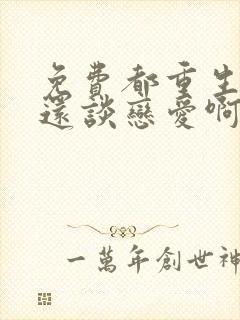 免費都重生
還談戀愛啊
一萬年創世神